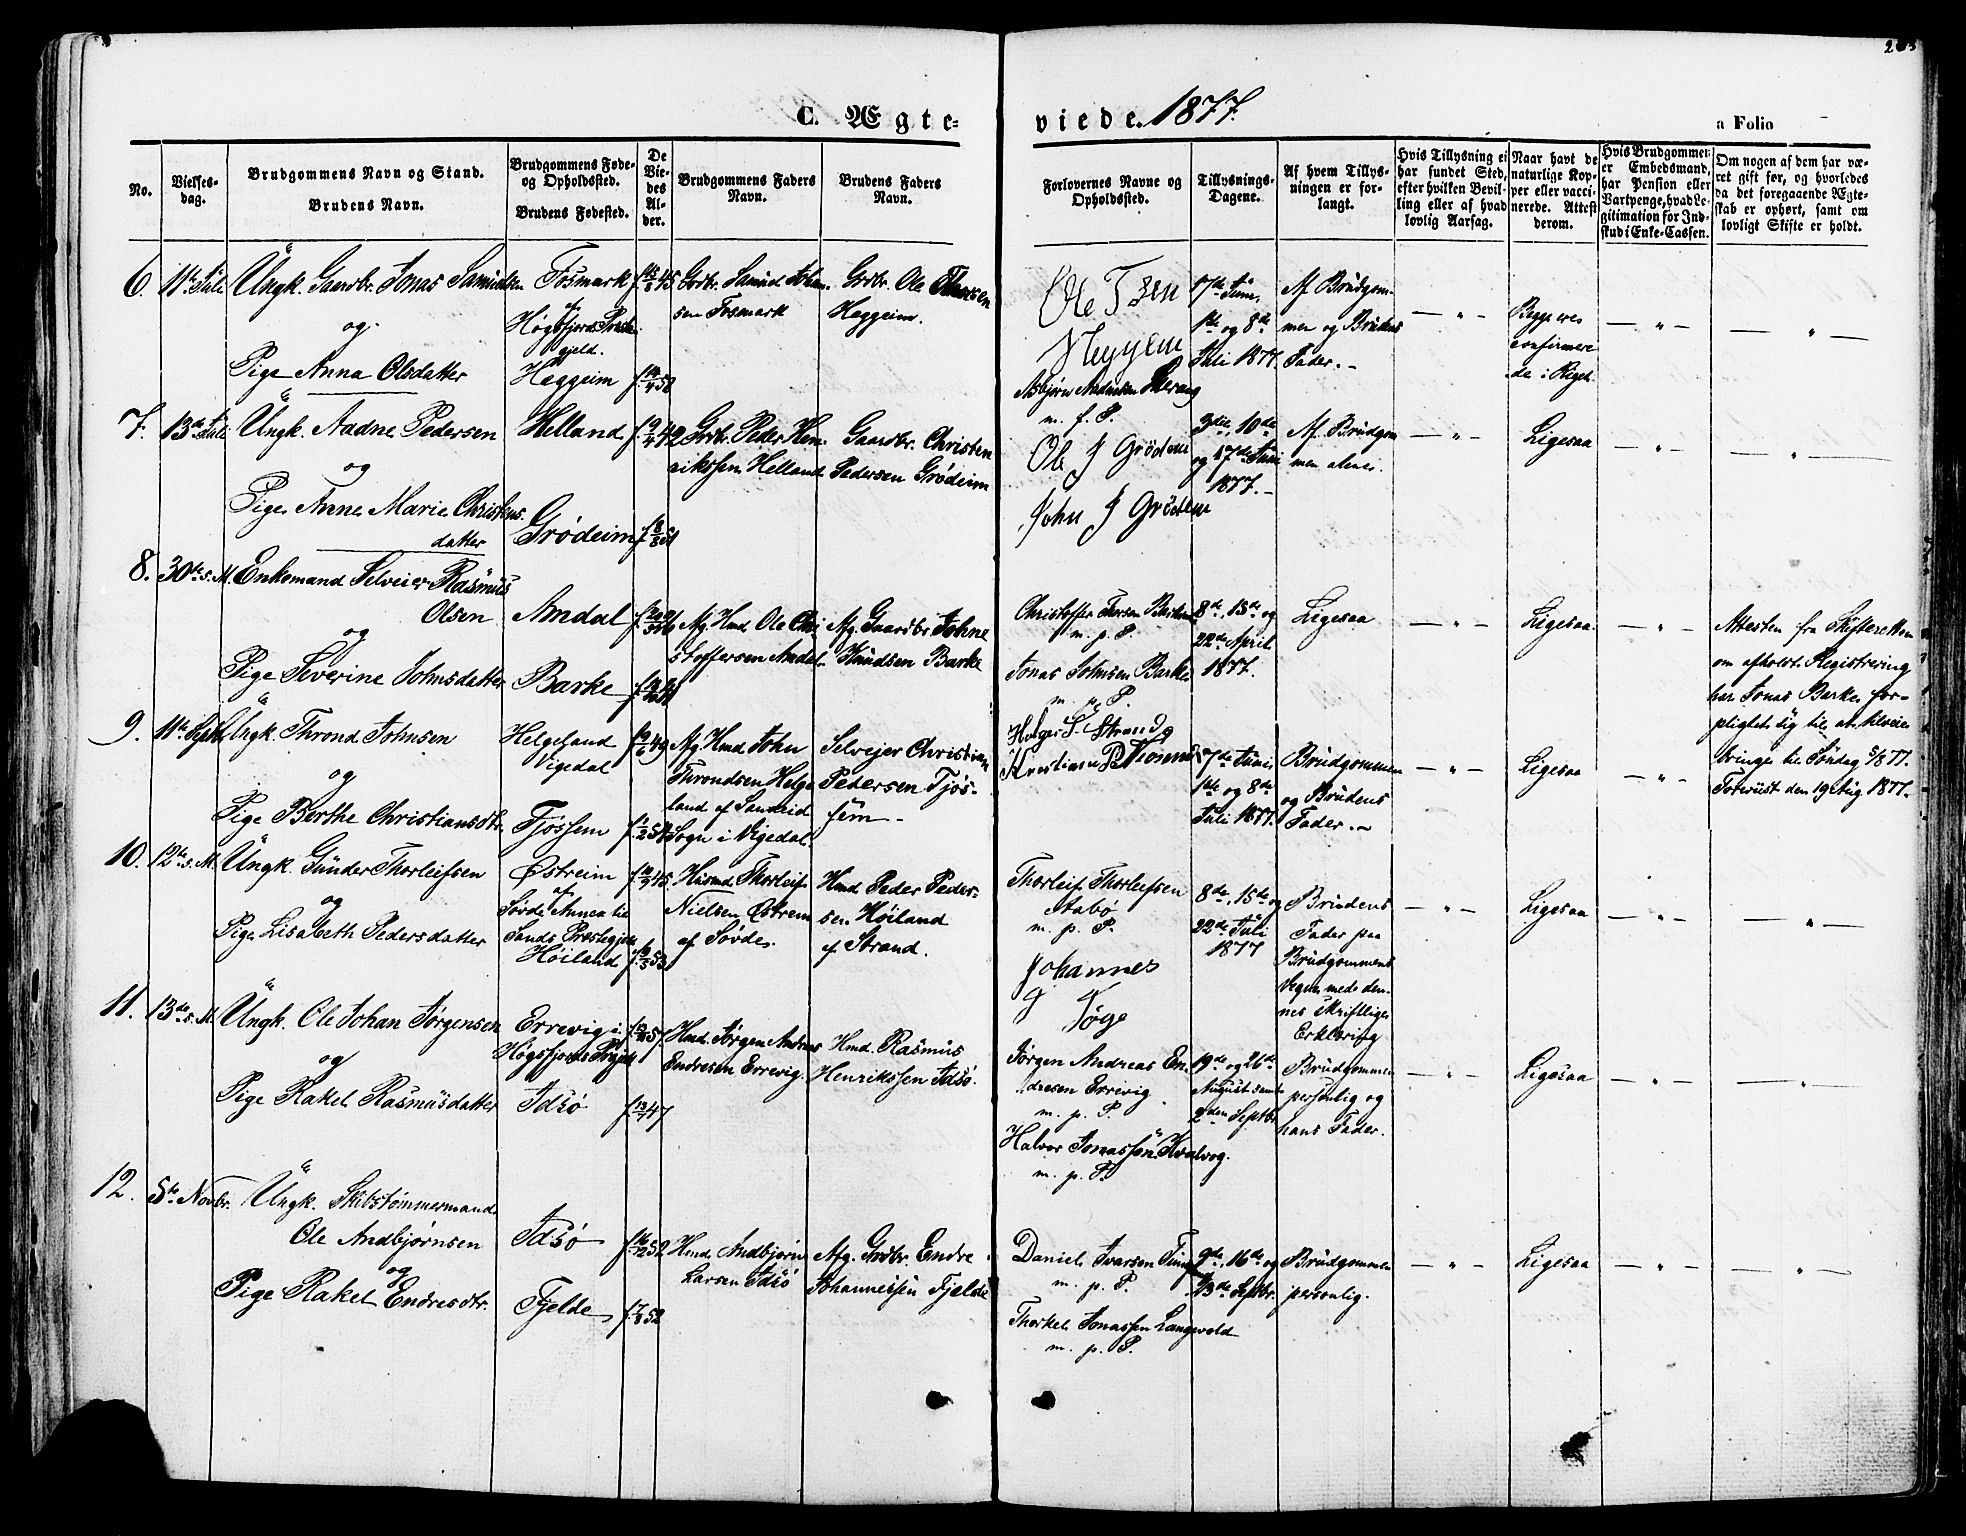 C. Ægte-
viede. 1877.
a Folio
No.
Vielses-
dag.
Brudgommens Navn og Stand.
Brudens Navn.
Brudgommens Føde-
og Opholdssted.
Brudens Fødested.
De
Vie-
des
Al-
der.
Brudgommens Faders
Navn.
Brudens Faders
Navn.
Forlovernes Navne og
Opholdssted.
Tillysnings-
Dagene.
Af hvem Tillys-
ningen er for-
langt.
Hvis Tillysning ei
har fundet Sted,
efter hvilken Bevil-
ling eller af hvad
lovlig Aarsag.
Naar havt de
naturlige Kop-
per eller vacci-
nerede. Attest
derom.
Hvis Brudgommen
er Embedsmand,
har Pension eller
Vartpenge, hvad Le-
gitimation for Ind-
skud i Enke-Cassen.
Om nogen af dem har væ-
ret gift før, og hvorledes
da det foregaaende Ægte-
skab er ophørt, samt om
lovligt Skifte er holdt.
6. 11te Juli
Ungk. Gaardbr. Jonas Samuelsen
og
Pige Anna Olsdatter
Fosmark
af
Høgsfjords Præste-
gjeld.
Heggeim
f. 45
f. 52
Grdbr. Samuel Johan-
sen Fosmark
Grdbr. Ole Thorsen
Heggeim.
Ole T Sen
Heggem
m. f. P.
17de Juni,
1ste og 8de
Juli 1877.
Af Brudgom-
men og Brudens
Fader. -
Begge ere
confirmere-
de i Riget.
7. 13de Juli
Ungk. Aadne Pedersen
og
Pige Anne Marie Christens-
datter
Helland
Grødeim
f. 42
f. 51
Grdbr. Peder Hen-
rikssen Helland
Gaardbr. Christen
Pedersen Grødeim
Ole J Grödem
John J Grödem
3die, 10de
og 17de Juni
1877. -
Af Brudgom
men alene.
Ligesaa
8. 30te s. M.
Enkemand Selveier Rasmus
Olsen
og
Pige Severine Johnsdatter
Amdal
Barke
Afg. Hmd. Ole Chri
stoffersen Amdal
Afg. Gaardbr. Johne
Knudsen Barke
m. p. P.
Jonas Johnsen Barke
m. p. P.
8de, 15de og
22de April
1877.
Ligesaa
Ligesaa.
Attesten fra Skifteretten
om afholdt Registrering
har Jonas Barke for-
pligtet sig til at tilveie-
bringe til Søndag 5/8 77.
Foreviist den 19 Aug 1877.
9. 11te Septbr
Ungk. Thrond Johnsen
og
Pige Berthe Christiansdtr.
Helgeland
Vigedal
Tjøssem
f. 49
f. 54
Afg. Hmd. John
Throndsen Helge
land af Sandeid
Sogn i Vigedal.
Selvejer Christian
Petersen Tjøs-
sem -
Holger S. Strand
17de Juni,
1ste og 8de
Juli 1877.
Brudgommen
og Brudens
Fader. -
Ligesaa
10. 12te s. M.
Ungk. Gunder Thorleifsen
og
Pige Lisabeth Pedersdatter
Østreim
af
Søvde Annex til
Sands Præstegjeld
Høiland
f. 45
f. 53
Husmd. Thorleif
Nielsen Østrem
af Søvde.
Hmd. Peder Peder-
sen Høiland
af Strand.
Thorleif Thorleifsen
Aabø
m. p. P.
Johannes
8de, 15de og
22de Juli
1877
Brudens
Fader paa
Brudgommens
Vegne med den-
nes skriftlige
Erklæring
Ligesaa
11. 13de s. M.
Ungk. Ole Johan Jørgensen
og
Pige Rakel Rasmusdatter
Errevig i
Høgsfjords Prgjeld
Idsø
f. 57
f. 47
Hmd. Jørgen Andreas
Endresen Errevig.
Hmd. Rasmus
Henrikssen Idsø.
Jørgen Andreas En-
dresen Errevig
m. p. P.
Halvor Jonassen Kvalvog.
m. p. P.
19de og 26de
August samt
2den Septbr
Brudgommen
personlig og
hans Fader.
Ligesaa
12. 5te Novbr.
Ungk. Skibstømmermand
Ole Andbjørnsen
og
Pige Rakel Endresdtr.
Idsø
Fjelde
f. 52
f. 7/8 52
Hmd. Andbjørn
Larsen Idsø
Afg. Grdbr. Endre
Johannessen Fjelde
Daniel Ivarsen Tung
m. p. P.
Thorkel Jonassen Langvold
m. p. P.
9de, 16de og
23de Septbr.
Brudgommen
personlig.
Ligesaa